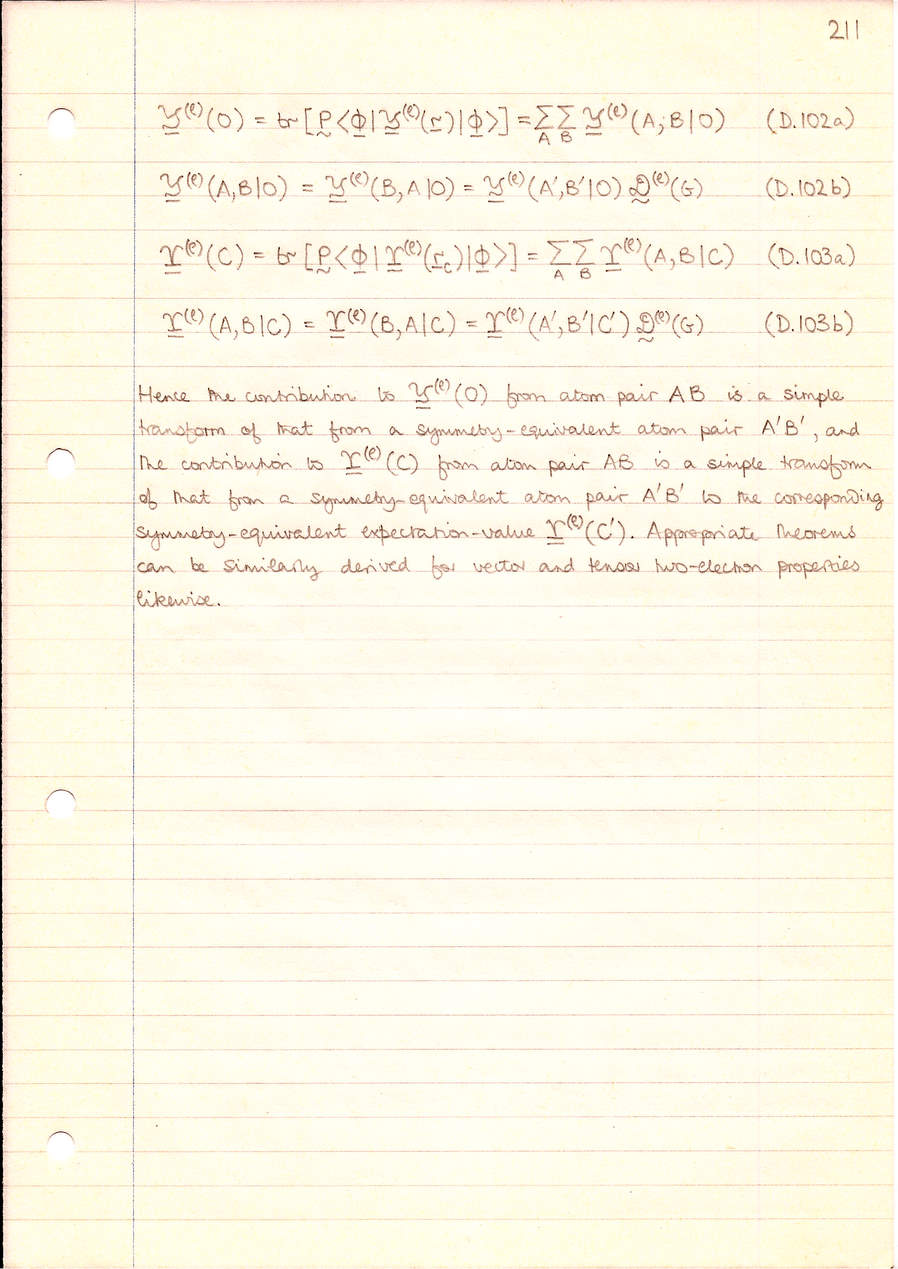 211
𝒴̲⁽ˡ⁾(O) = tr[P̰<Φ̲|𝒴̲⁽ˡ⁾(r̲)|Φ̲>] = ∑_A ∑_B 𝒴̲⁽ˡ⁾(A,B|O) (D.102a)
𝒴̲⁽ˡ⁾(A,B|O) = 𝒴̲⁽ˡ⁾(B,A|O) = 𝒴̲⁽ˡ⁾(A′,B′|O) 𝒟̰⁽ˡ⁾(G) (D.102b)
ϒ̲⁽ˡ⁾(C) = tr[P̰<Φ̲|ϒ̲⁽ˡ⁾(r̲_C)|Φ̲>] = ∑_A ∑_B ϒ̲⁽ˡ⁾(A,B|C) (D.103a)
ϒ̲⁽ˡ⁾(A,B|C) = ϒ̲⁽ˡ⁾(B,A|C) = ϒ̲⁽ˡ⁾(A′,B′|C′) 𝒟̰⁽ˡ⁾(G) (D.103b)
Hence the contribution to 𝒴̲⁽ˡ⁾(O) from atom pair AB is a simple
transform of that from a symmetry-equivalent atom pair A′B′, and
the contribution to ϒ̲⁽ˡ⁾(C) from atom pair AB is a simple transform
of that from a symmetry-equivalent atom pair A′B′ to the corresponding
symmetry-equivalent expectation-value ϒ̲⁽ˡ⁾(C′). Appropriate theorems
can be similarly derived for vector and tensor two-electron properties
likewise.